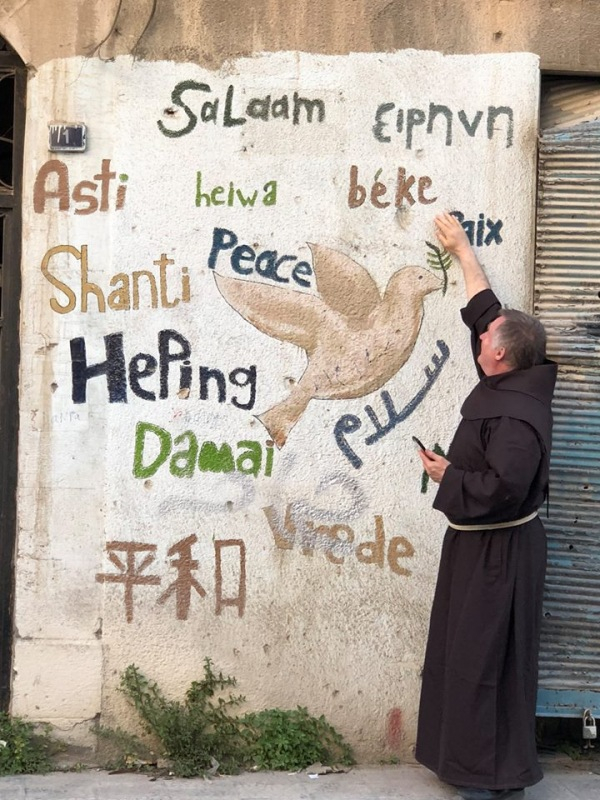 Salaam
ειρηνη
Asti
heiwa
béke
aix
Peace
Shanti
HePing
سلام
Damai
Vrede
平和